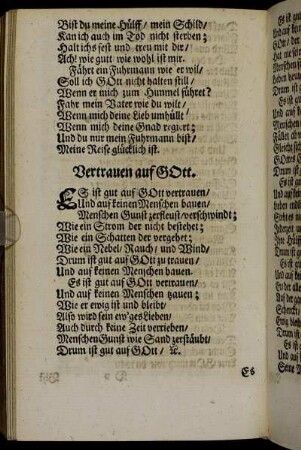 Bist du meine Hülff/ mein Schild/
Kan ich auch im Tod nicht sterben;
Halt ichs fest und treu mit dir/
Ach! wie gutt/ wie wohl ist mir.
Fährt ein Fuhrmann wie er wil/
Soll ich GOtt nicht halten still/
Wenn er mich zum Himmel führet?
Fahr mein Vater wie du wilt/
Wenn mich deine Lieb umhüllt/
Wenn mich deine Gnad regiert;
Und du nur mein Fuhrmann bist/
Meine Reise glücklich ist.
Vertrauen auf GOtt.
ES ist gut auf GOtt vertrauen/
Und auf keinen Menschen bauen/
Menschen Gunst zerfleust/verschwindt;
Wie ein Strom der nicht bestehet;
Wie ein Schatten der vergehet;
Wie ein Nebel/ Rauch/ und Wind/
Drum ist gut auf GOtt zu trauen/
Und auf keinen Menschen bauen.
Es ist gut auf GOtt vertrauen/
Und auf keinen Menschen bauen;
Wie er ewig ist und bleibt/
Also wird sein ew'ges Lieben/
Auch durch keine Zeit verrieben/
Menschen Gunst wie Sand zerstäubt/
Drum ist gut auf GOtt/ &c.
Es